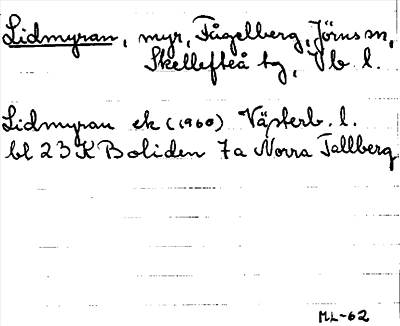 Lidmyran, myr, Fågelberg, Jörns sn,
Skellefteå tg, Vb. l.
Lidmyran ek (1960) Västerb. l.
bl 23 K Boliden 7a Norra Tallberg
ML-62